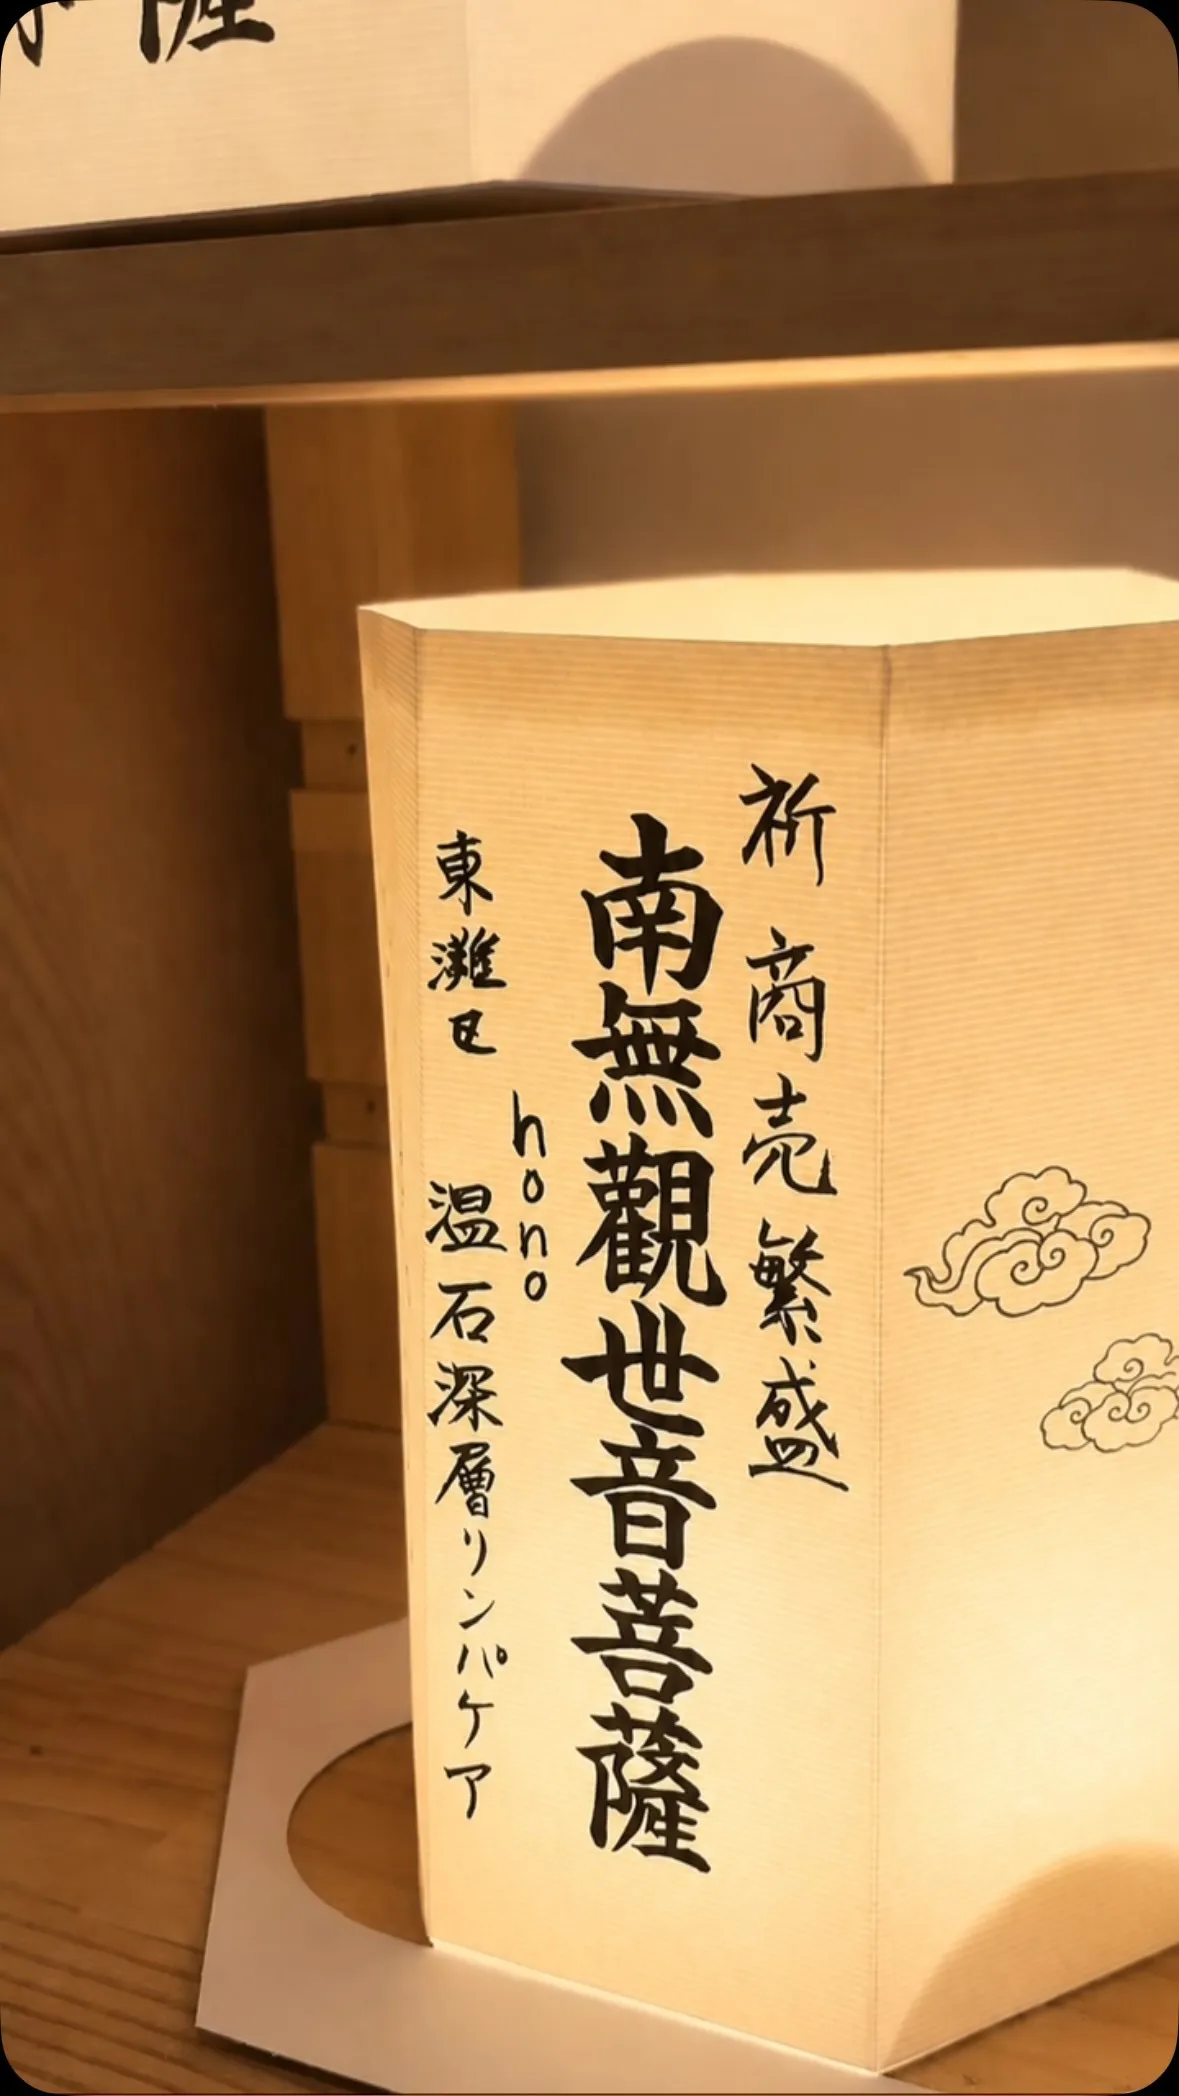 薩
祈 商売繁盛
南無觀世音菩薩
hono
東灘区 温石深層リンパケア